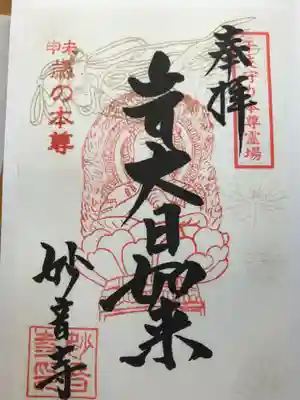 奉拝
十二支守り本尊霊場
大日如来
未申歳の本尊
妙音寺